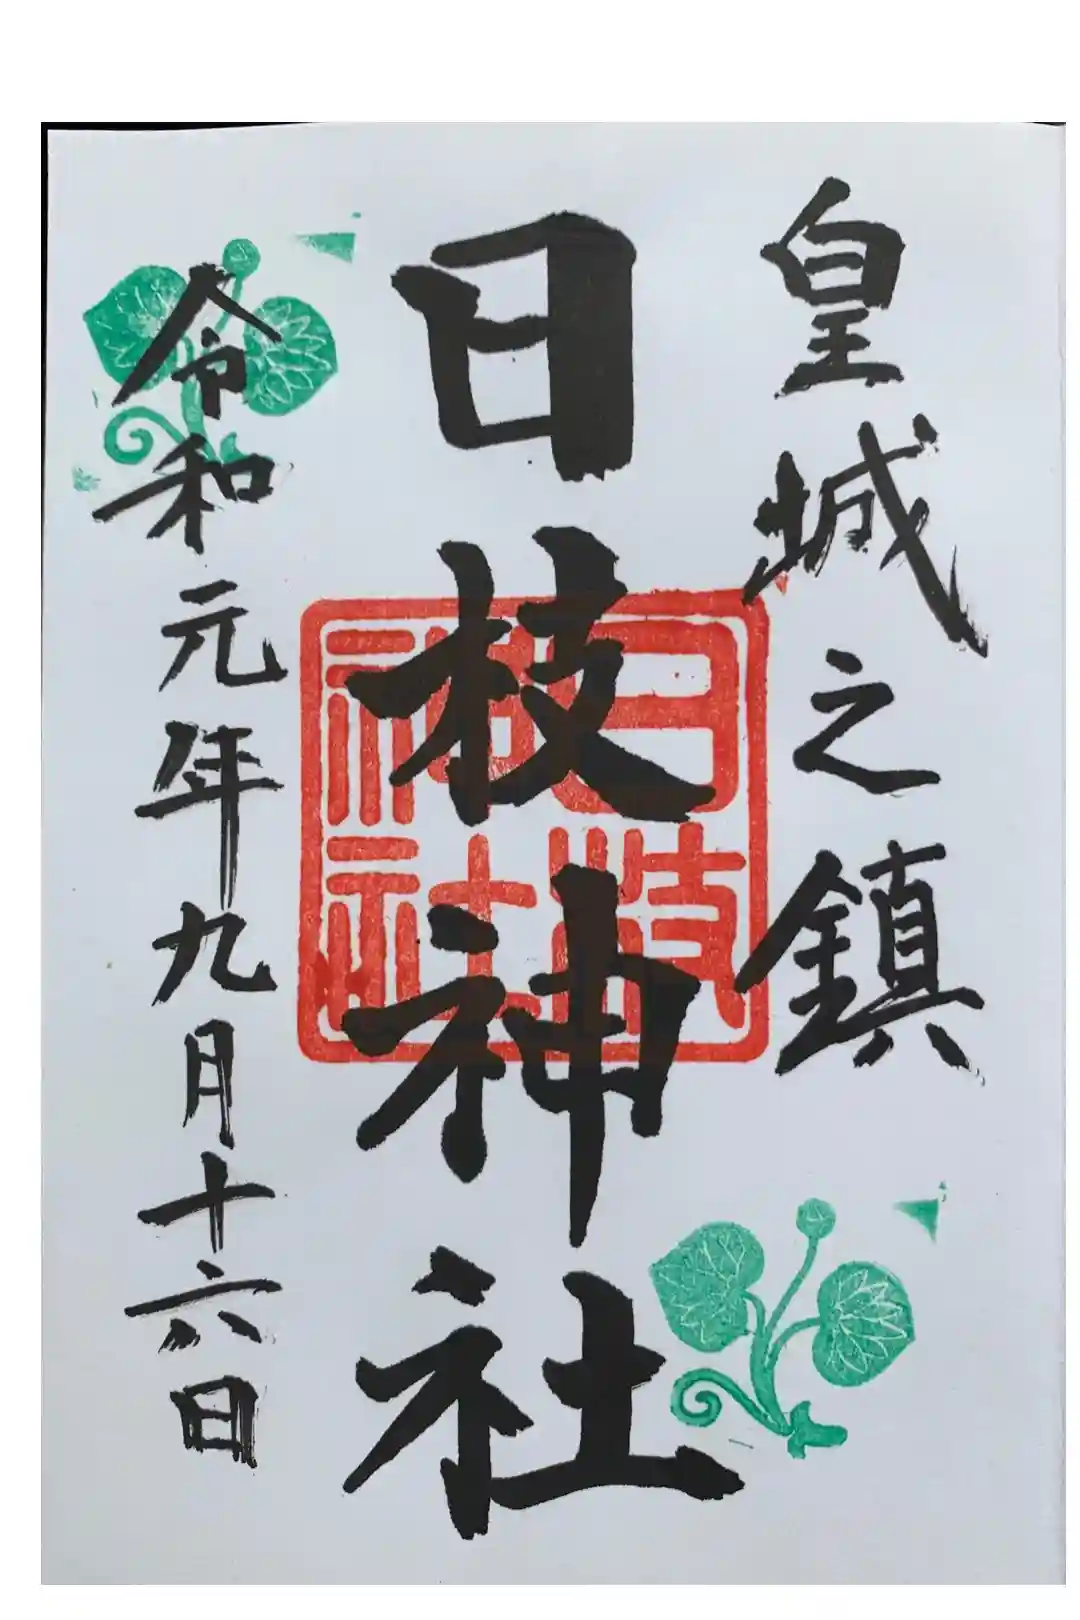 皇城之鎮
日枝神社
日枝神社
令和元年九月十六日